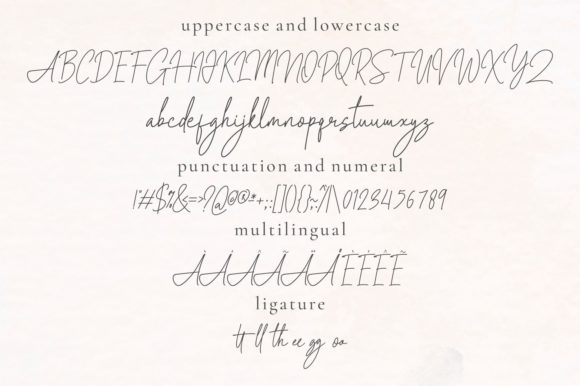 uppercase and lowercase
ABCDEFGHIJKLMNOPQRSTUVWXYZ
abcdefghijklmnopqrstuvwxyz
punctuation and numeral
!"#$%&<=>?@©®*+,:[](){};~?/|\0123456789
multilingual
ÀÁÂÃÄÅÈÉÊẼ
ligature
tt ll th ee gg oo